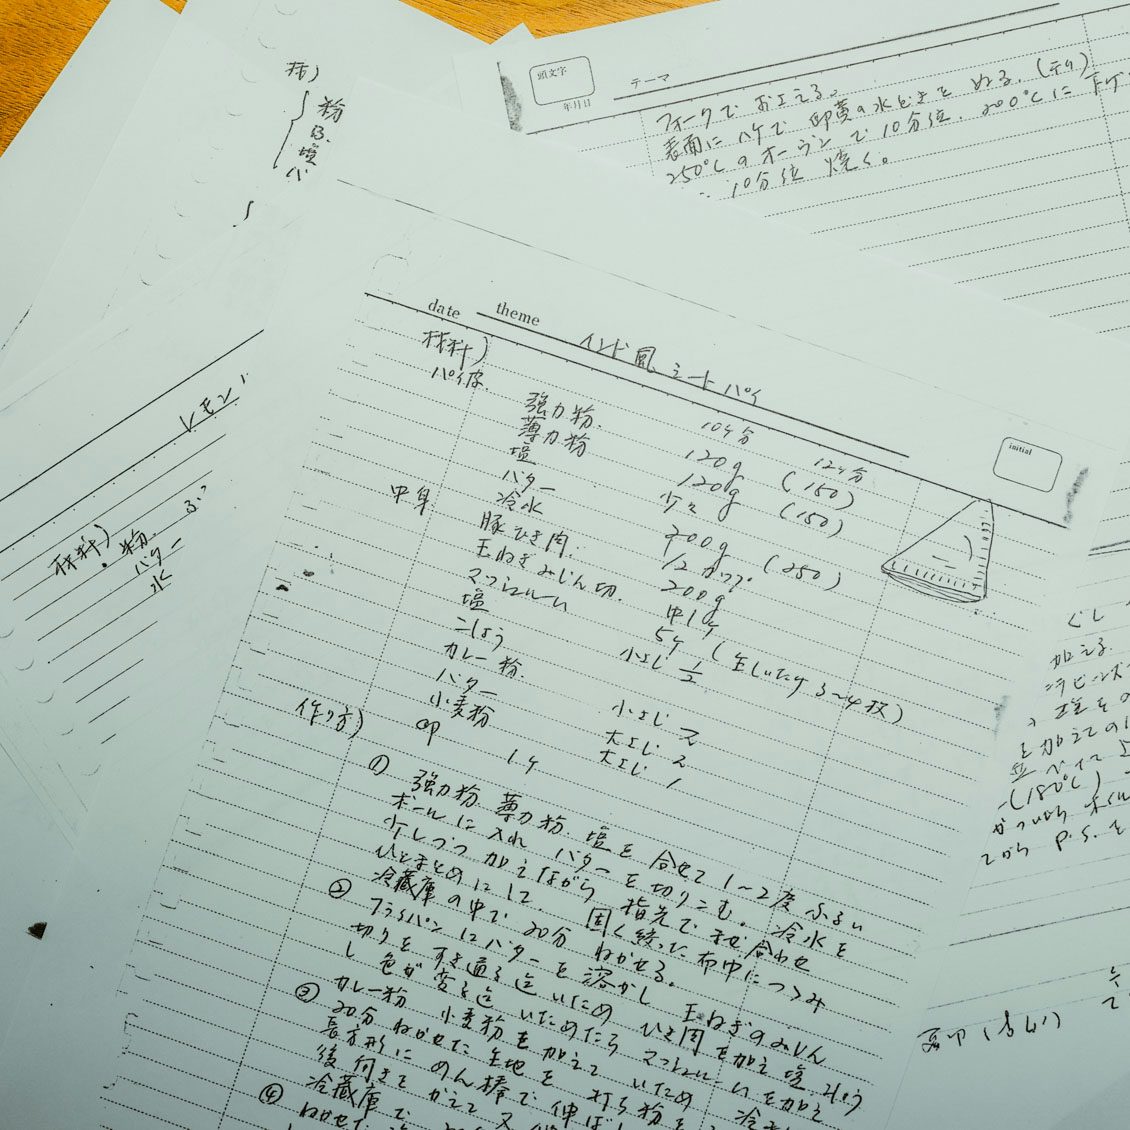 材)
粉
塩
バ
頭文字
年月日
テーマ
フォークで おさえる。
表面に ハケで 卵黄の水どきを ぬる。(テリ)
250℃の オーブンで 10分位. 200℃に 下げ
10分位 焼く。
date
theme
インド風 ミートパイ
initial
材料)
10ヶ分
12ヶ分
パイ皮
強力粉. 120g (150)
薄力粉 120g (150)
塩 少々
バター 200g (250)
冷水 1/2カップ
中身
豚ひき肉. 200g
玉ねぎみじん切. 中1ヶ
マッシュルーム 5ヶ (生しいたけ 3〜4枚)
塩 小さじ 1/2
こしょう
カレー粉. 小さじ 2
バター 大さじ 2
小麦粉 大さじ 1
卵 1ヶ
作り方)
① 強力粉 薄力粉 塩を 合せて 1〜2度 ふるい
ボールに 入れ バターを切りこむ。 冷水を
少しづつ 加えながら 指先で まぜ合わせ
ひとまとめにして 固く絞った 布巾に つつみ
冷蔵庫の中で 20分 ねかせる。
② フライパンにバターを 溶かし 玉ねぎのみじん
切りを すき通る迄 いため ひき肉を加え 塩 こしょう
し 色が 変る迄 いためたら マッシュルームを加え
カレー粉 小麦粉を 加えて いため
③ 20分 ねかせた 生地を 打ち粉を
長方形に めん棒で 伸ばし
後 向きを かえて 又
冷蔵庫で
④ ねかせた
レモン
材料)
粉
バター
水
ぐし
加える
を加えて
(180℃)
から P.S.を